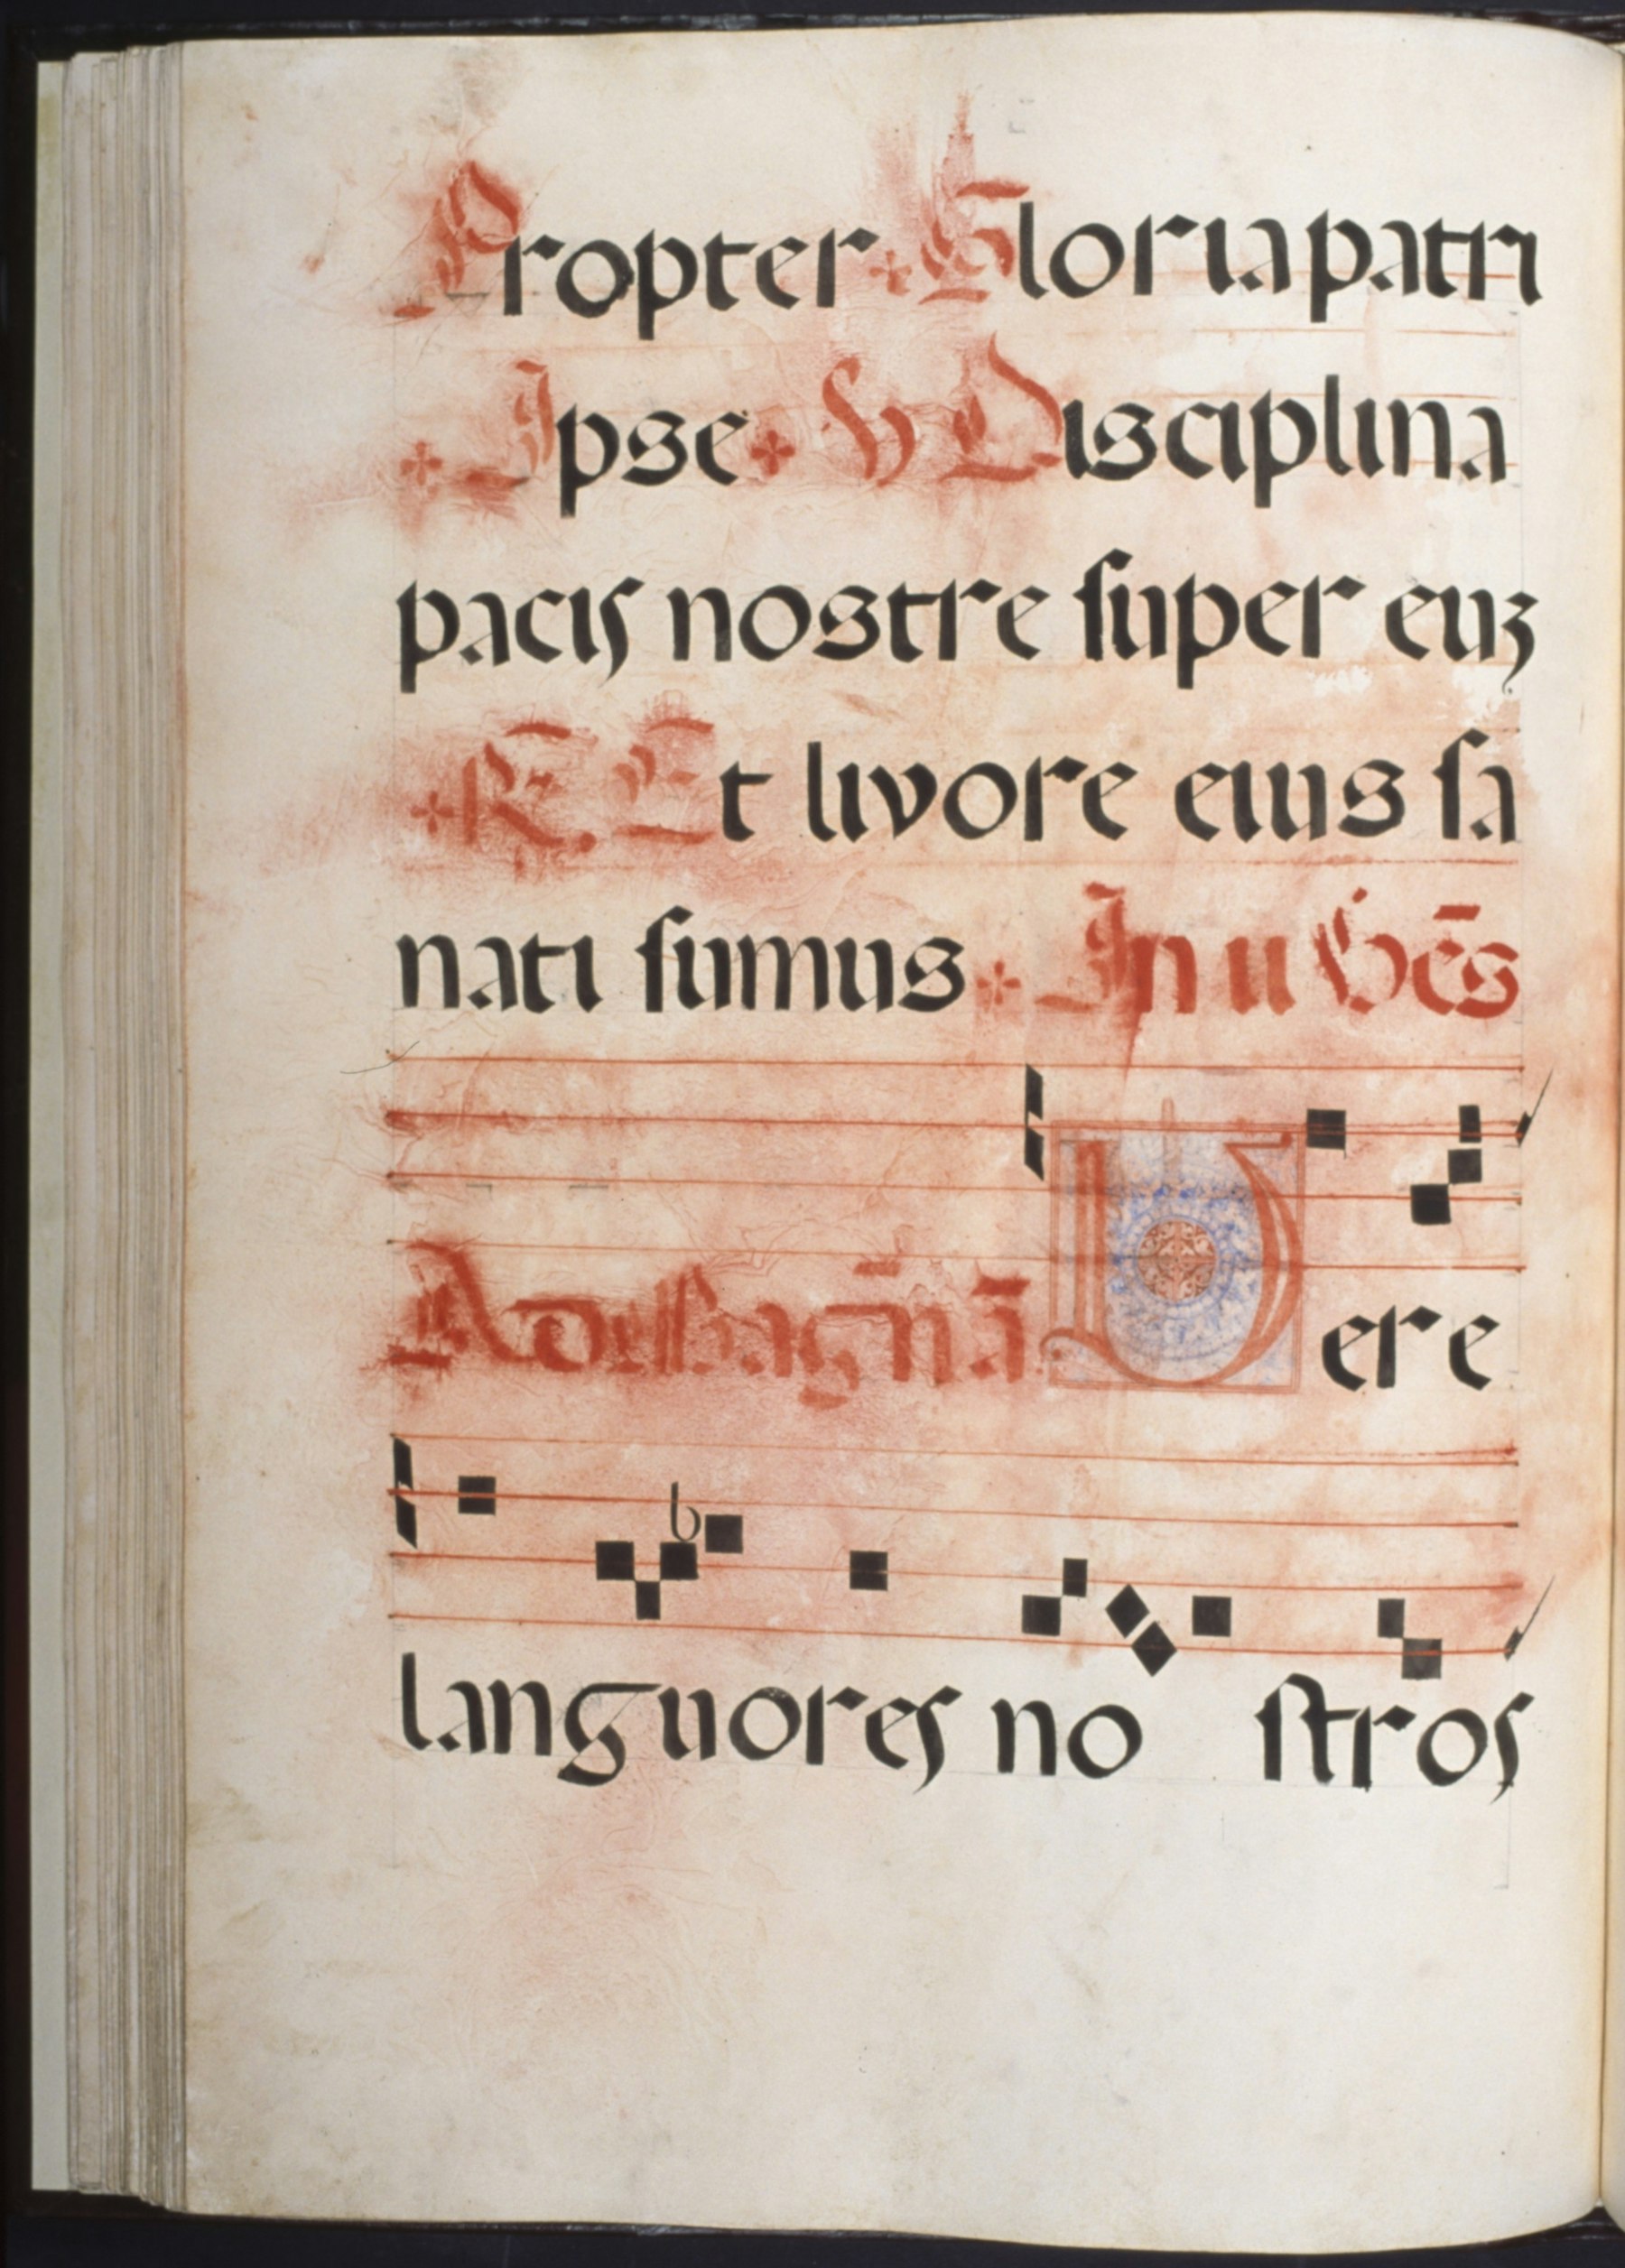 Propter + Gloria patri
+ Ipse + V Disciplina
pacis nostre super euz
+ R. Et livore eius sa
nati sumus + In u hēs
Ad Magnā. Vere
b
languores no stros